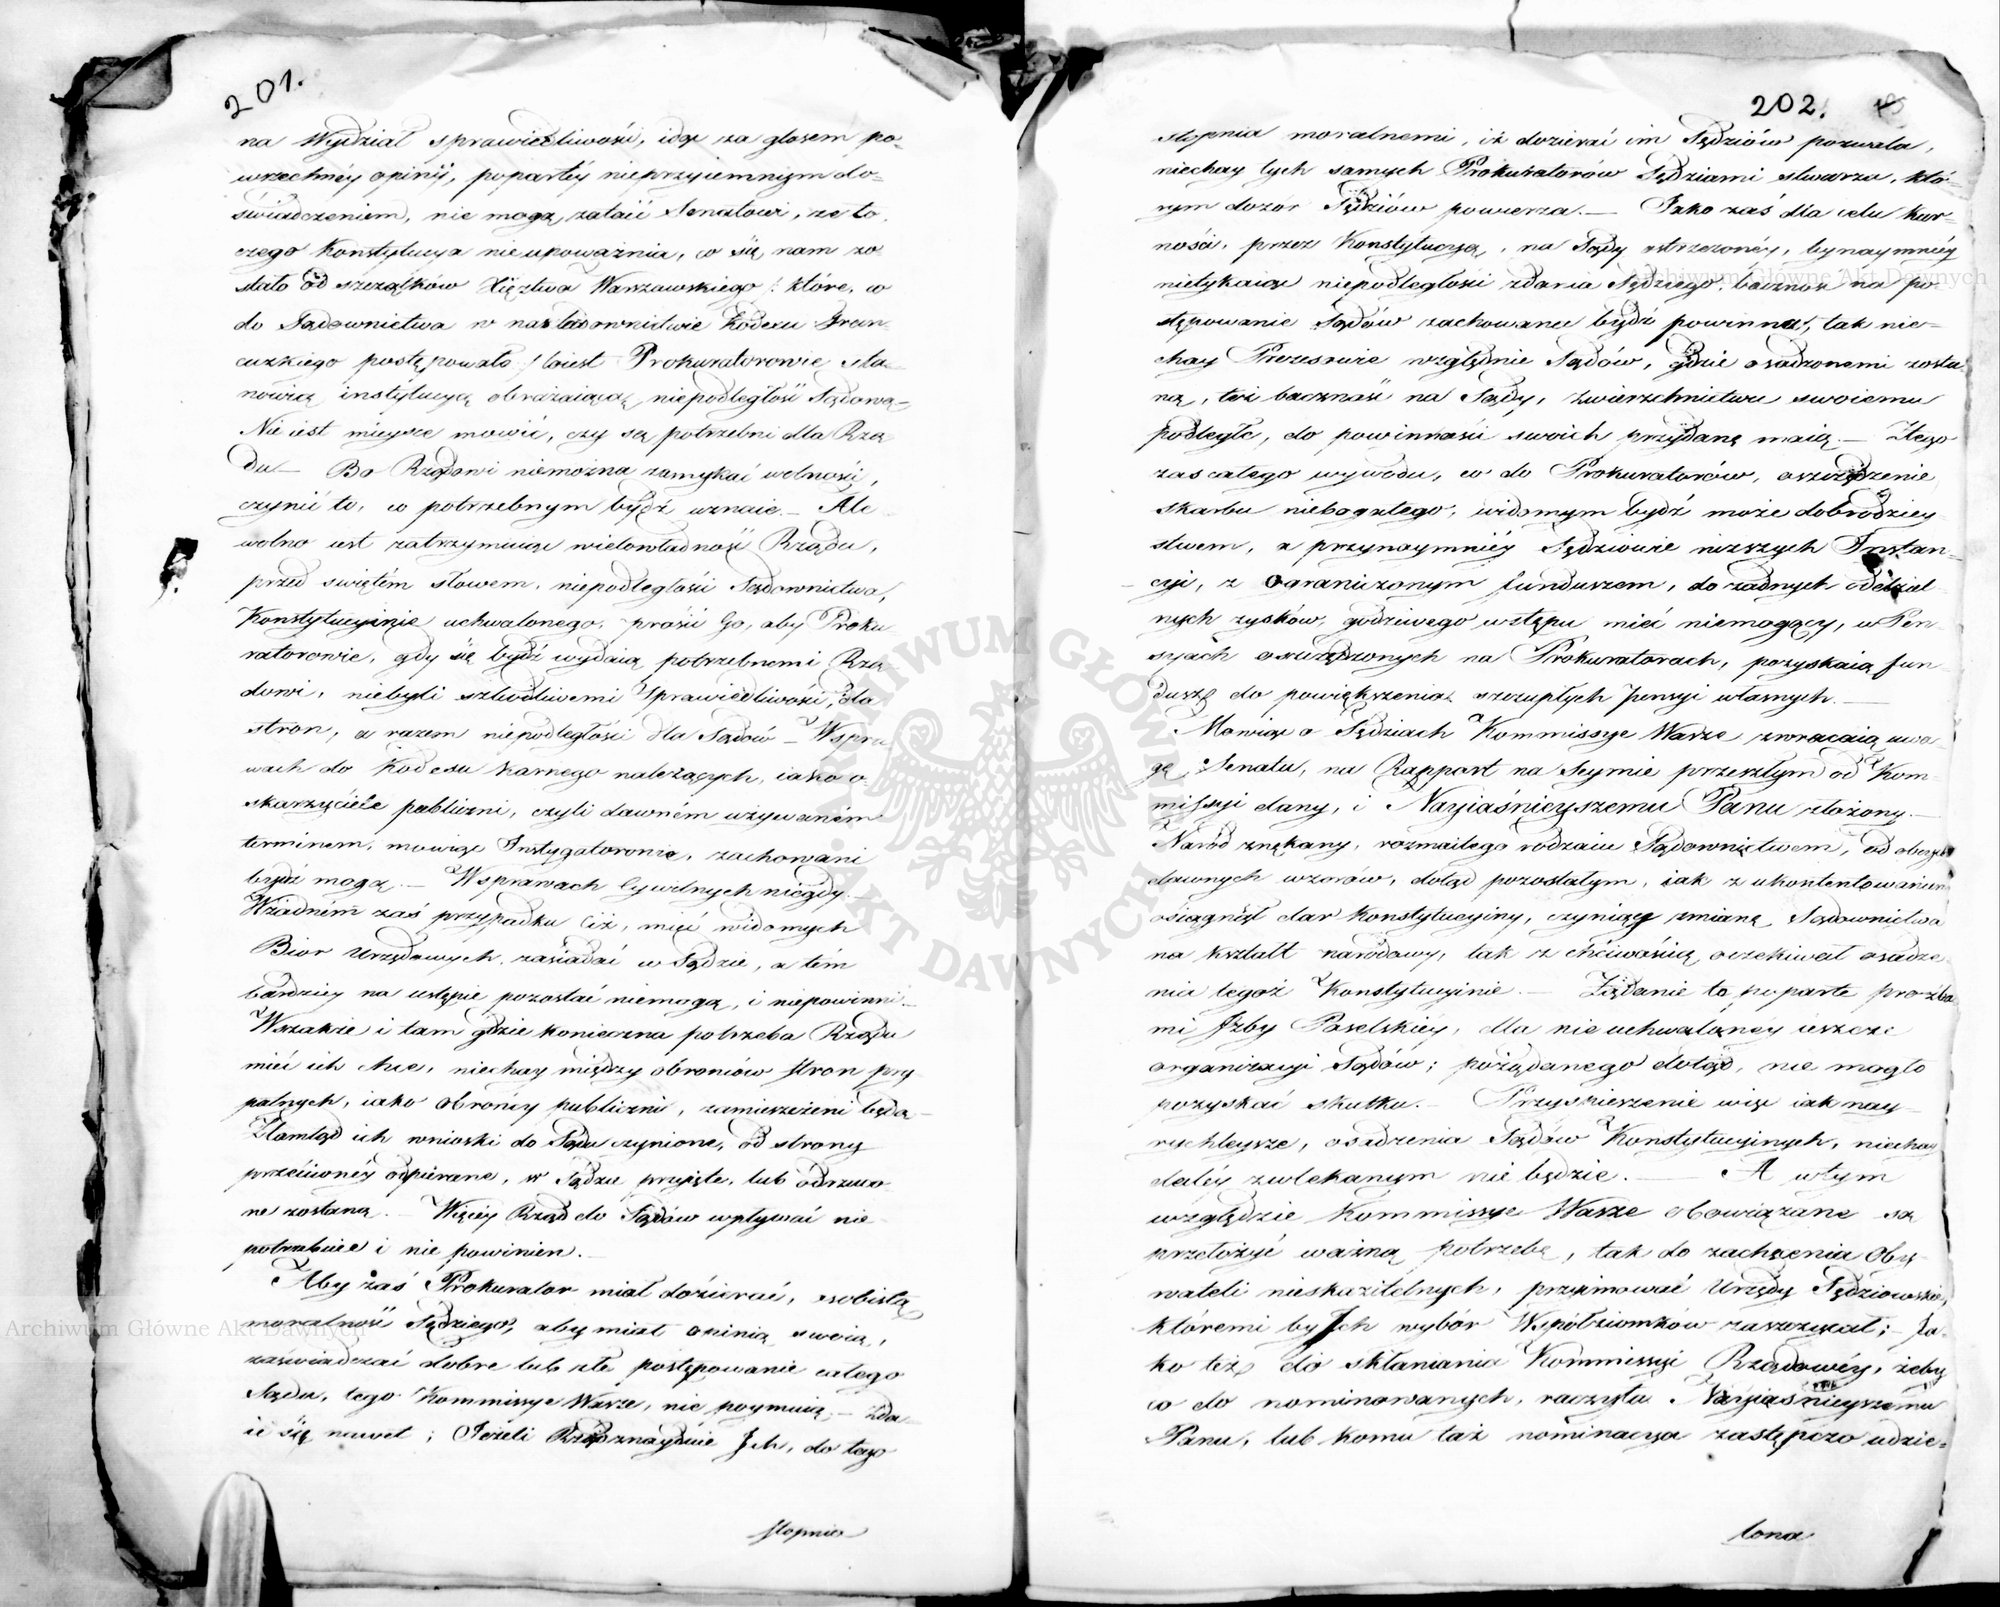 201.
na Wydział sprawiedliwości, idąc za głosem po=
wszechnéy opinij, popartéy nieprzyiemnym do=
świadczeniem, nie mogą zataić Senatowi, że to,
czego Konstytucya nieupoważnia, co się nam zo
stało od szczątków Xięztwa Warszawskiego /: które, co
do Sądownictwa w naśladownictwie Kodexu Fran
cuzkiego postępowało :/ to iest Prokuratorowie, sta
nowią instytucyą obrażaiącą niepodległość Sądową –
Nie iest mieysce mówić, czy są potrzebni dla Rzą
du – Bo Rządowi niemożna zamykać wolności,
czynić to, co potrzebnym bydź uznaie. – Ale
wolno iest zatrzymuiąc wielowładność Rządu,
przed świętém słowem, niepodległości Sądownictwa,
Konstytucyinie uchwalonego, prosić Go, aby Proku
ratorowie, gdy się bydź wydaią potrzebnemi Rzą
dowi, niebyli szkodliwemi Sprawiedliwości, dla
stron, a razem niepodległości dla Sądów – W spra
wach do Kodexu karnego należących, iako o
skarżyciele publiczni, czyli dawném używaném
terminem, mówiąc Instygatorowie, zachowani
bydź mogą. – W sprawach Cywilnych nigdy. –
W żadném zaś przypadku ciż, mieć widomych
Biór Urzędowych, zasiadać w Sądzie, a tém
bardziey na ustępie pozostać niemogą, i niepowinni. –
Wszakże i tam gdzie konieczna potrzeba Rządu
mieć ich chce, niechay między obrońców stron pry
watnych, iako obrońcy publiczni, zamieszczeni będą –
Ztamtąd ich wnioski do Sądu czynione, od strony
przeciwnéy odpierane, w Sądzie przyjęte, lub odrzuco
ne zostaną. – Więcéy Rząd do Sądów wpływać nie
potrzebuie i nie powinien. –
Aby zaś Prokurator miał dozierać, osobistą
moralność Sędziego, aby miał opinią swoią,
zaświadczać dobre lub złe postępowanie całego
Sądu, tego Kommissye Wasze, nie poymuią. – Zda
ie się nawet; Jeżeli Rząd znayduie Ich, do tego
stopnia
202.
stopnia moralnemi, iż dozierać im Sędziów pozwala,
niechay tych samych Prokuratorów Sędziami stwarza, któ=
rym dozór Sędziów powierza. – Jako zaś dla celu kar=
ności, przez Konstytucyą, na Sądy ostrzeżonéy, bynaymniéy
nietykaiąc niepodległości zdania Sędziego, baczność na po=
stępowanie Sądów zachowana bydź powinna, tak nie=
chay Prezesowie względnie Sądów, gdzie osadzonemi zosta
ną, też baczność na Sądy, zwierzchnictwu swoiemu
podległe, do powinności swoich przydaną maią. – Z tego
zaś całego wywodu, co do Prokuratorów, oszczędzenie
skarbu niebogatego, widomym bydź może dobrodziey
stwem, a przynaymniéy Sędziowie niższych Instan=
cyi, z ograniczonym funduszem, do żadnych oddziel
nych zysków, godziwego wstępu mieć niemogący, w Pen
syach oszczędzonych na Prokuratorach, pozyskaią fun
dusze do powiększenia szczupłych pensyi własnych. –
Mówiąc o Sędziach Kommissye Wasze zwracaią uwa
gę Senatu, na Rapport na Seymie przeszłym od Kom
missyi dany, i Nayiaśnieyszemu Panu złożony. –
Naród znękany, rozmaitego rodzaiu Sądownictwem, od obcych
dawnych wzorów, dotąd pozostałym, iak z ukontentowaniem
osiągnął dar Konstytucyiny, czyniący zmianę Sądownictwa
na kształt narodowy, tak z chciwością oczekiwał osadze
nia tegoż Konstytucyinie. – Żądanie to, poparte prozba
mi Izby Poselskiéy, dla nieuchwalonéy ieszcze
organizacyi Sądów; pożądanego dotąd, nie mogło
pozyskać skutku. – Przyspieszenie więc iak nay=
rychleysze, osadzenia Sądów Konstytucyinych, niechay
daléy zwlekanym nie będzie. – A w tym
względzie Kommissye Wasze obowiązane są
przełożyć ważną potrzebę, tak do zachęcenia Oby
wateli nieskazitelnych, przyimować Urzędy Sędziowskie,
któremi by Ich wybór Współziomków zaszczycał; – Ja=
ko też do skłaniania Kommissyi Rządowéy, żeby
co do nominowanych, raczyła Nayiaśnieyszemu
Panu, lub komu taż nominacya zastępczo udzie=
lona
Archiwum Główne Akt Dawnych
Archiwum Główne Akt Dawnych
ARCHIWUM GŁÓWNE AKT DAWNYCH